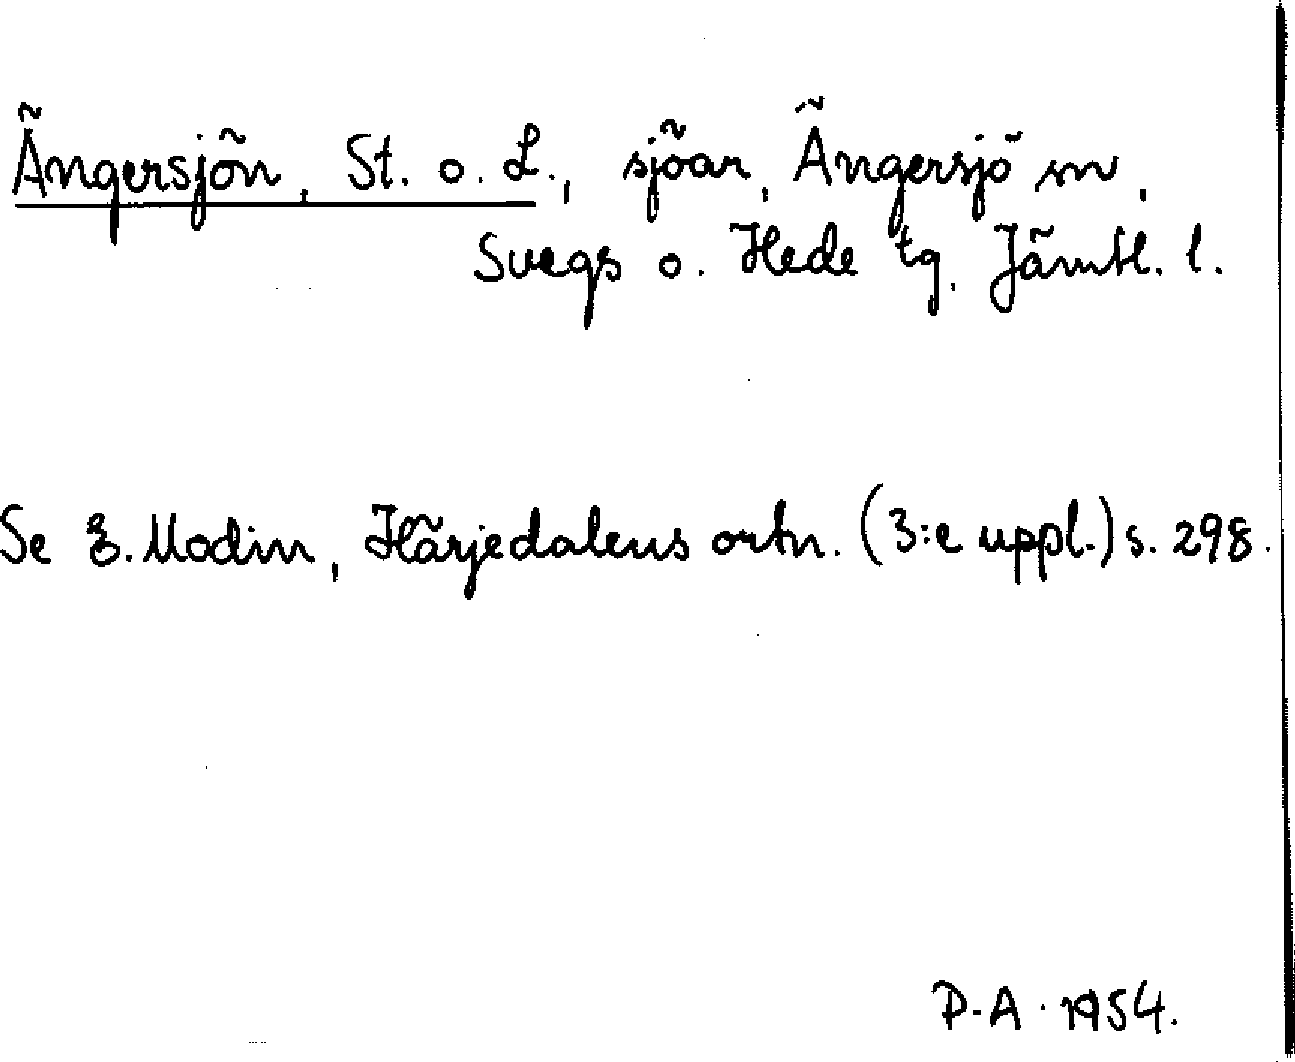 Ängersjön, St. o. L., sjöar, Ängersjö sn,
Svegs o. Hede tg, Jämtl. l.
Se E. Modin, Härjedalens ortn. (3:e uppl.) s. 298.
P-A. 1954.